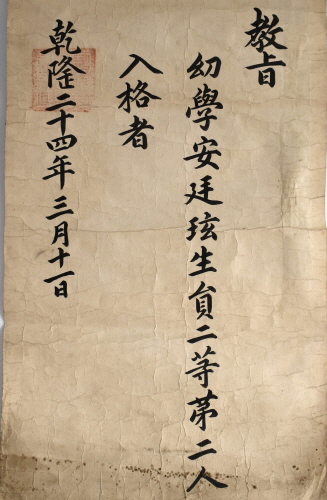 教旨
幼學安廷玹生員二等第二人
入格者
乾隆二十四年三月十一日